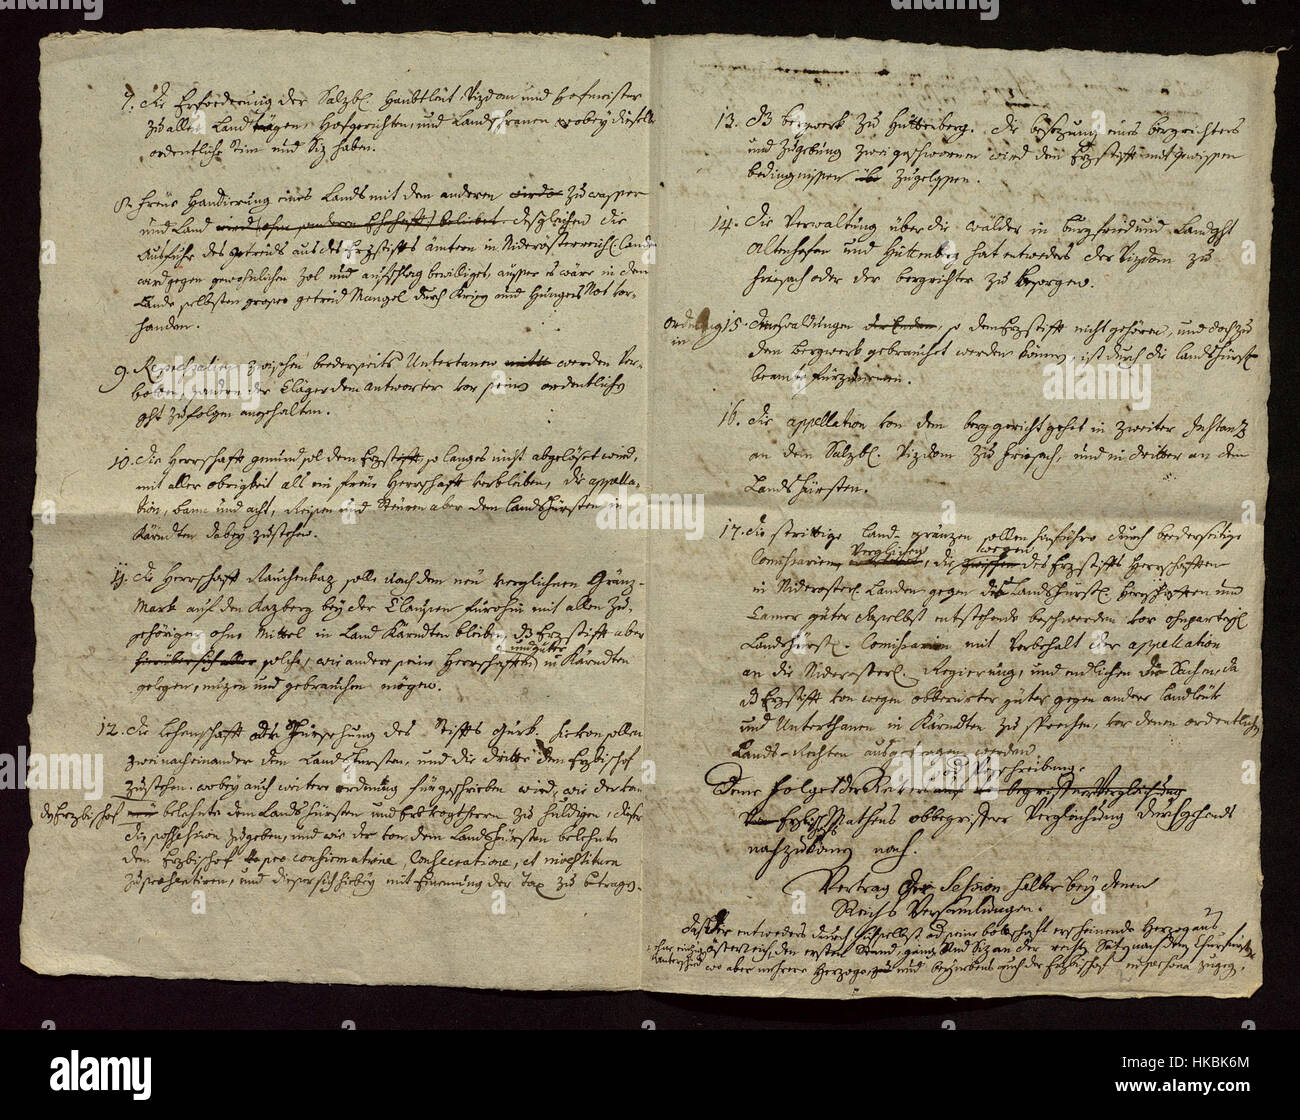 7. die Erforderung der Salzb. Haubtleut Vizdom und Hofmeister
zu allen Landtägen, Hofgerichten, und Landschranen wobey dieselb
ordentliche Stim und Siz haben.
8. Freüe Handierung eines Lands mit dem anderen wirdt zu wasser
und Land desgleichen die
Ausfuhr des Getreids aus des Erzstiffts ämtern in Niderösterreich. Landen
wird gegen gewohnlichen Zol und aufschlag bewilliget, ausser es wäre in dem
Lande selbsten grosser getreid Mangel durch Krieg und Hungers Not vor-
handen.
9. Repressalien zwischen beederseits Untertanen werden ver-
boten, sondern der Cläger dem antworter vor seine ordentliche
ght zu folgen angehalten.
10. die Herrschafft gemünd sol dem Erzstifft so lang es nicht abgelöst wird,
mit aller obrigkeit als ein freüe Herrschafft verbleiben, die appella-
tion, bann und acht, Reisen und Steüren aber dem Landsfürsten in
Kärndten dabey zustehen.
11. die Herrschafft Rauchenkaz solle nach dem neü verglichnen Gränz-
Mark auf den Kazberg bey der Clausen fürohin mit allen Zu-
gehörigen ohne Mittel in Land Kärndten bleiben, dz Erzstifft aber
solche, wie andere seine Herrschafften und güter in Kärndten
gelegen, nuzen und gebrauchen mögen.
12. die Lehenschafft oder Fürsehung des Stiffts Gurk. hievon sollen
zwei nacheinander dem Landsfürsten, und die dritte dem Erzbischof
zustehen. wobey auch weitere ordnung fürgeschrieben wird, wie der von
dem Erzbischof belehnte dem Landsfürsten und Erbvogtherrn zu huldigen, diser
die possession zugeben, und wie der von dem Landsfürsten belehnte
dem Erzbischof pro confirmatione, Consecratione, et investitura
zu präsentiren, und dieser sich hiebey mit Einemung der Tax zu betragen.
13. dz bergwerk zu Hüttenberg. die besezung eines bergrichters
und Zugebung zwei geschwornen wird dem Erzstifft mit gewissen
bedingnissen zugelassen.
14. die Verwaltung über die wälder in burgfrid und Landght
Altenhofen und Hüttenberg hat entweder der Vizdom zu
Friesach oder der bergrichter zu besorgen.
15. ordnung in den waldungen, so dem Erzstifft nicht gehören, und doch zu
dem bergwerk gebraucht werden können, ist durch die landsfürstl.
beamte fürzunemen.
16. die appellation von dem berggericht gehet in zweiter Instanz
an den Salzb. Vizdom zu Friesach, und in dritter an den
Landsfürsten.
17. die strittige Land-gränzen sollen hinfüro durch beederseitige
Comissarien verglichen werden, die zwischen des Erzstiffts Herrschafften
in Niderösterl. Landen gegen des Landsfürstl. Herrschafften und
Camer güter daselbst entstehende beschwerden vor ohnparteyl.
Landsfürstl. Comissarien mit Vorbehalt der appellation
an die Niderösterl. Regierung, und endlichen die Sachen, da
dz Erzstifft von wegen obberürter güter gegen andere Landleüt
und Unterthanen in Kärndten zu sprechen, vor denen ordentlichen
Lands-Rechten ausgetragen werden
Vorschreibung.
Deme folget der begriffner Vergleichung
Erzbischof Matheus obbegrifner Vergleichung durchgehends
nachzukomen nach.
Vertrag der Session halber bey denen
Reichs Versamlungen.
Das der entweders durch sich selbst od seine botschaft erscheinende Herzog aus
österreich, den ersten Stand, gang und Siz an der rechte Seite nach dem Churfürsten
wo aber mehrere Herzoge und beynebens auch der Erzbischof in persona zugegen,
alamy
Image ID: HKBK6M
www.alamy.com